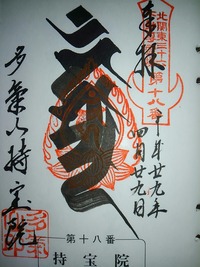 奉拝
北関東三十六
第十八番
平成廿九年
四月廿九日
多氣山持宝院
第十八番
持宝院